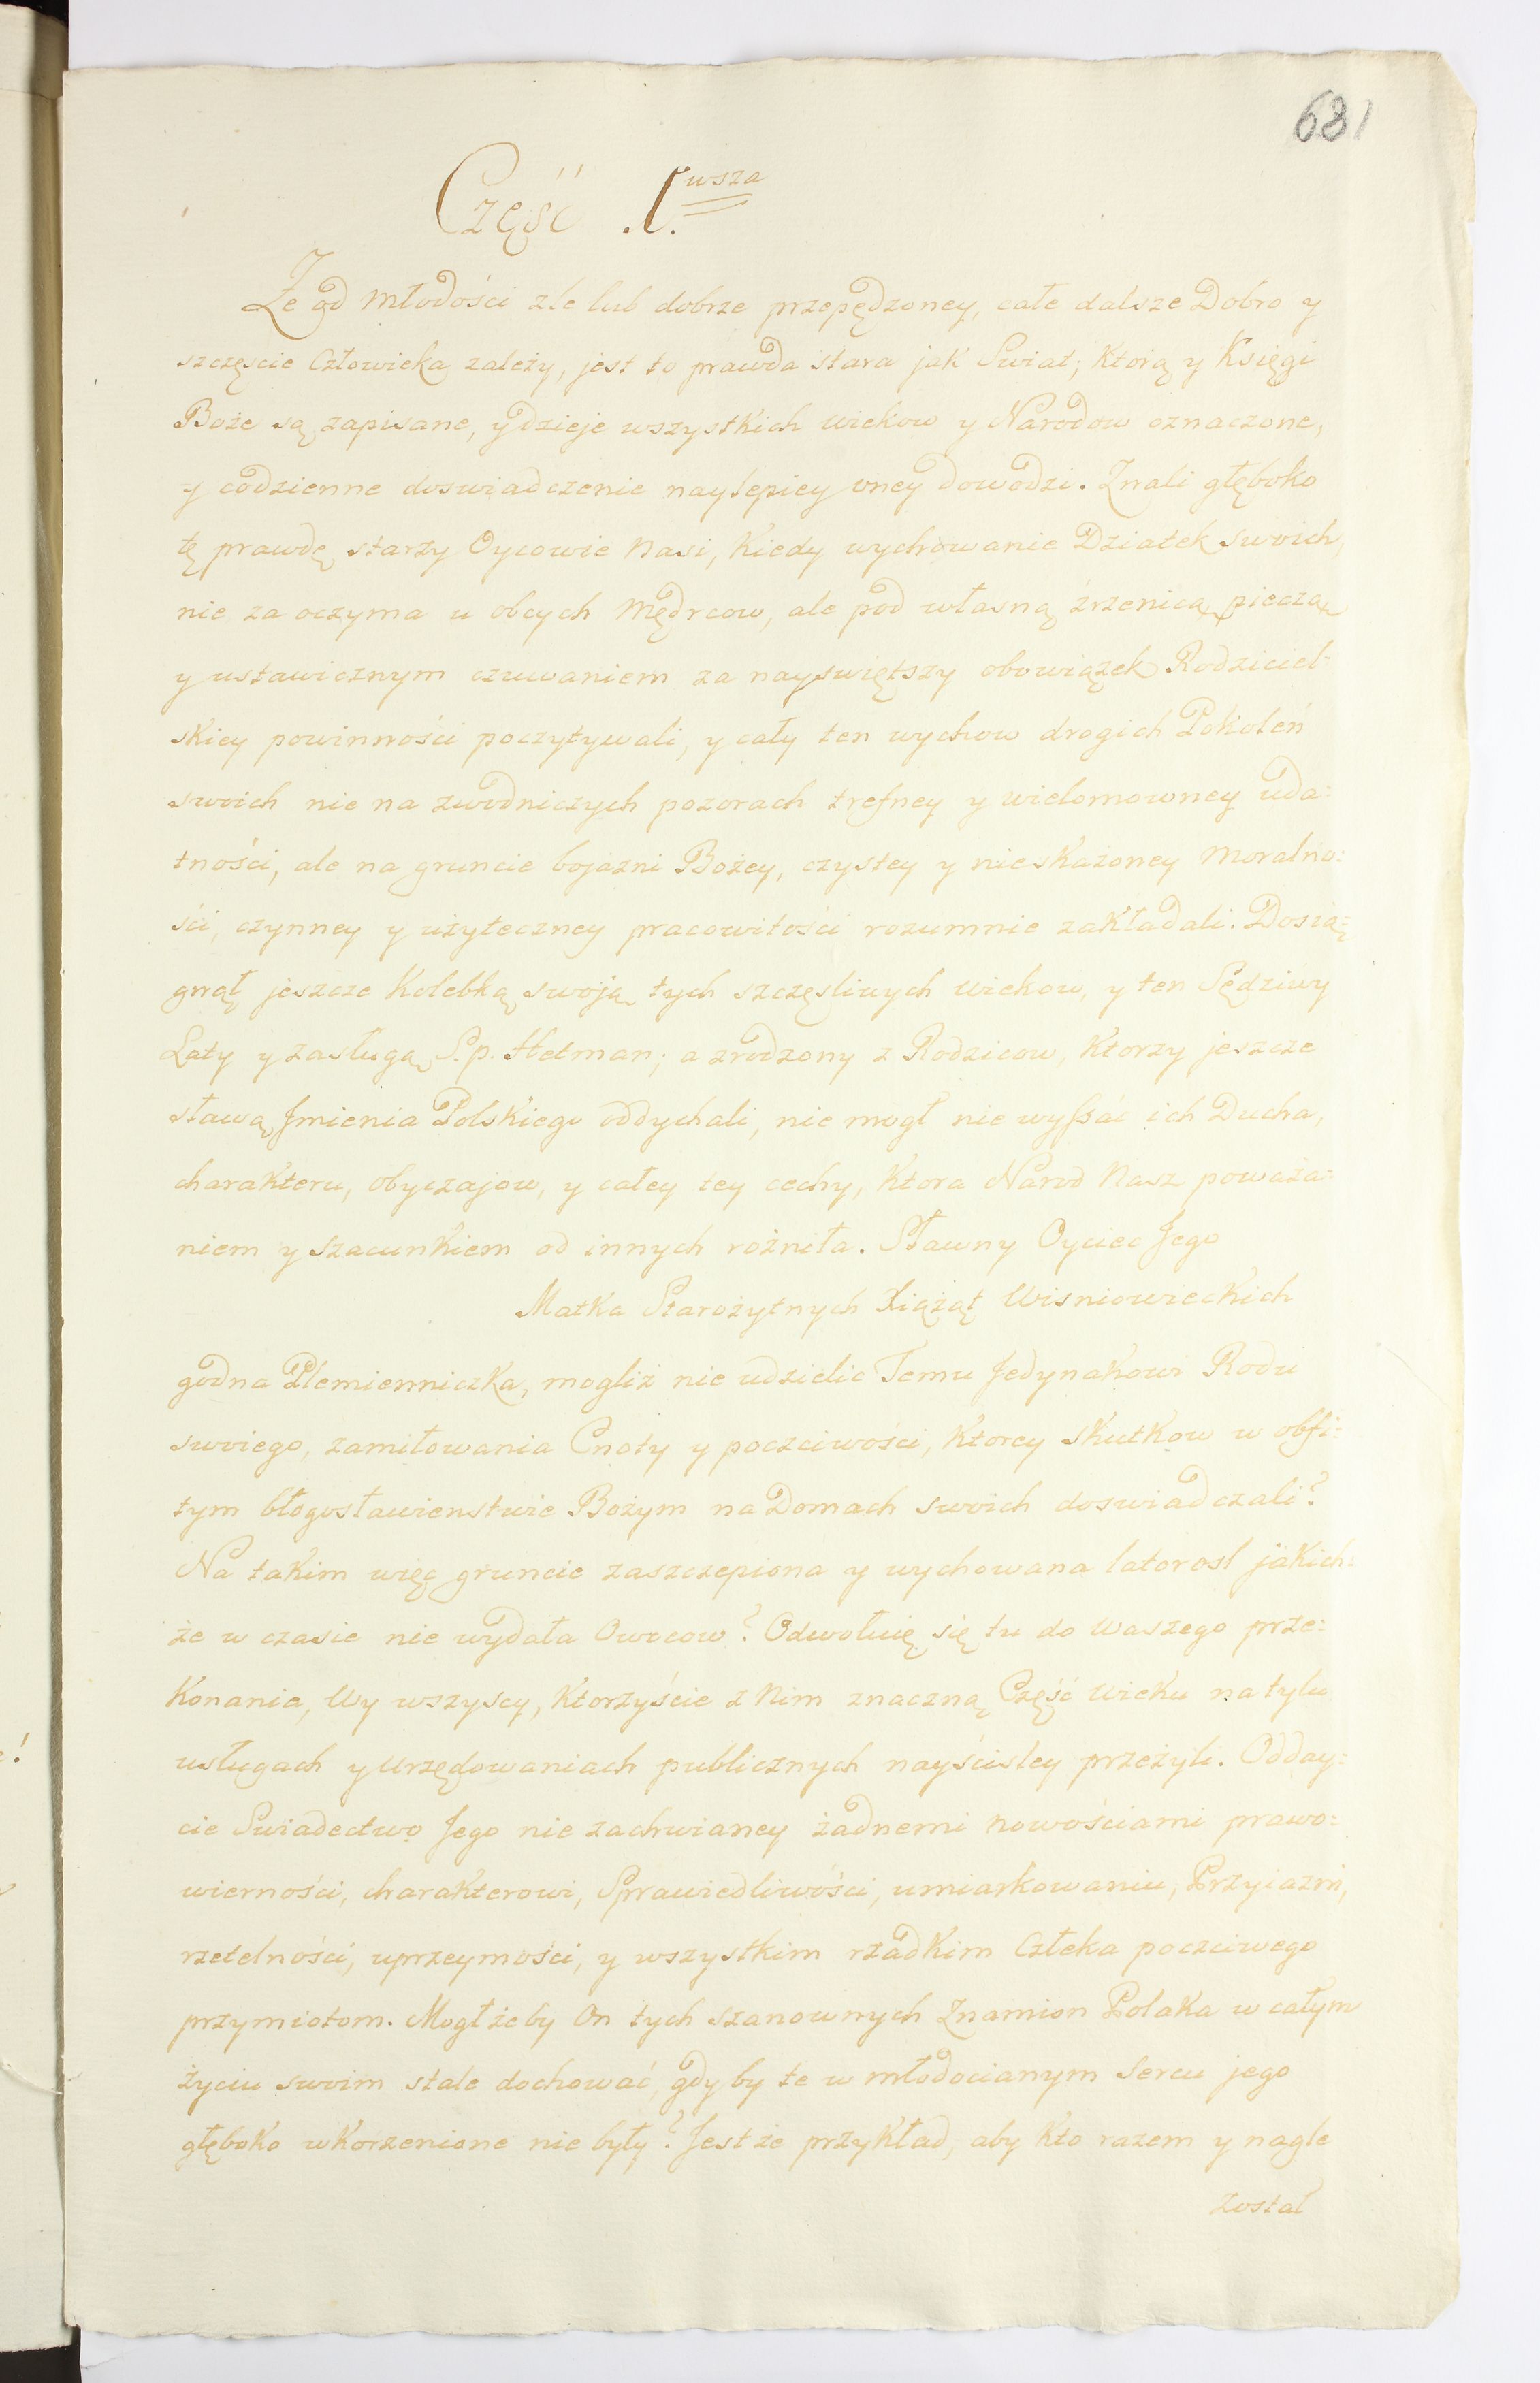 681
Część I.wsza
Że od młodości zle lub dobrze przepędzoney, całe dalsze Dobro y
szczęscie Człowieka zależy, jest to prawda stara jak Swiat; Ktorą y Księgi
Boże są zapisane, y dzieje wszystkich wiekow y Narodow oznaczone,
y codzienne doswiadczenie naylepiey oney dowodzi. Znali głęboko
tę prawdę starzy Oycowie Nasi, Kiedy wychowanie Dziatek swoich,
nie za oczyma u obcych Mędrcow, ale pod własną źrzenicą, pieczą
y ustawicznym czuwaniem za nayswiętszy obowiązek Rodziciel-
skiey powinności poczytywali, y cały ten wychow drogich Pokoleń
swoich nie na zwodniczych pozorach trefney y wielomowney uda:
tności, ale na gruncie bojazni Bożey, czystey y nieskażoney Moralno:
ści, czynney y użyteczney pracowitości rozumnie zakładali. Dosią:
gnął jeszcze Kolebką swoją tych szczęsliwych wiekow, y ten Sędziwy
Laty y zasługą S.p. Hetman; a zrodzony z Rodzicow, Ktorzy jeszcze
sławą Jmienia Polskiego oddychali, nie mogł nie wyssać ich Ducha,
charakteru, obyczajow, y całey tey cechy, Ktora Narod Nasz poważa:
niem y szacunkiem od innych rożniła. Sławny Oyciec Jego
Matka Starożytnych Xiążąt Wisniowieckich
godna Plemienniczka, mogliż nie udzielic Temu Jedynakowi Rodu
swoiego, zamiłowania Cnoty y poczciwości, Ktorey skutkow w obfi:
tym błogosławienstwie Bożym na Domach swoich doswiadczali?
Na takim więc gruncie zaszczepiona y wychowana latorosl jakich:
że w czasie nie wydała Owocow? Odwołuię się tu do Waszego prze:
Konania, Wy wszyscy, Ktorzyście z Nim znaczną Część Wieku na tylu
usługach y Urzędowaniach publicznych nayściśley przeżyli. Odday:
cie Swiadectwo Jego nie zachwianey żadnemi nowościami prawo:
wierności, charakterowi, Sprawiedliwości, umiarkowaniu, Przyiazni,
rzetelności, uprzeymości, y wszystkim rzadkim Człeka poczciwego
przymiotom. Mogłżeby On tych szanownych Znamion Polaka w całym
życiu swoim stale dochować, gdyby te w młodocianym Sercu jego
głęboko wkorzenione nie były? Jestże przykład, aby Kto razem y nagle
został